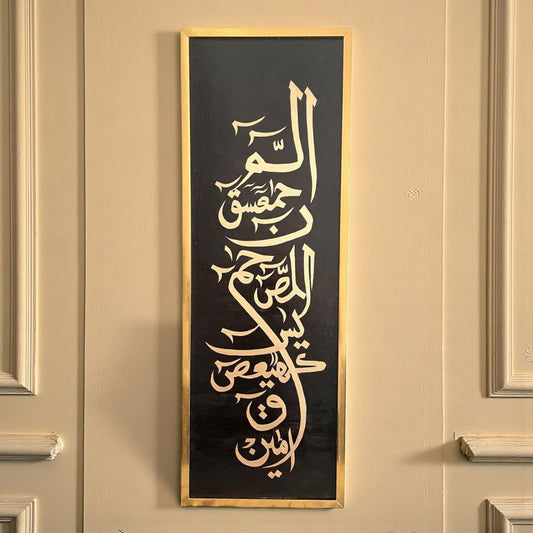 الـمّ
حمعسق
ن
حم
المّص
يس
كهيعص
ق
امين